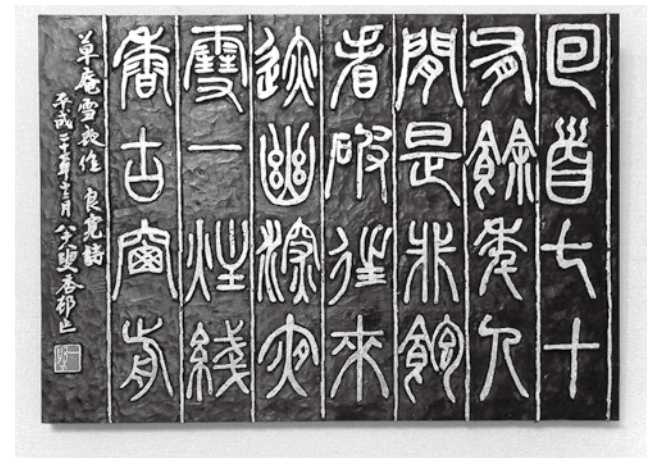 回首七十
有餘年人
間是非飽
看破往來
迹幽深夜
雪一炷綫
香古窗前
草庵雪夜作 良寛詩
平成二十七年十二月 叟杏邨